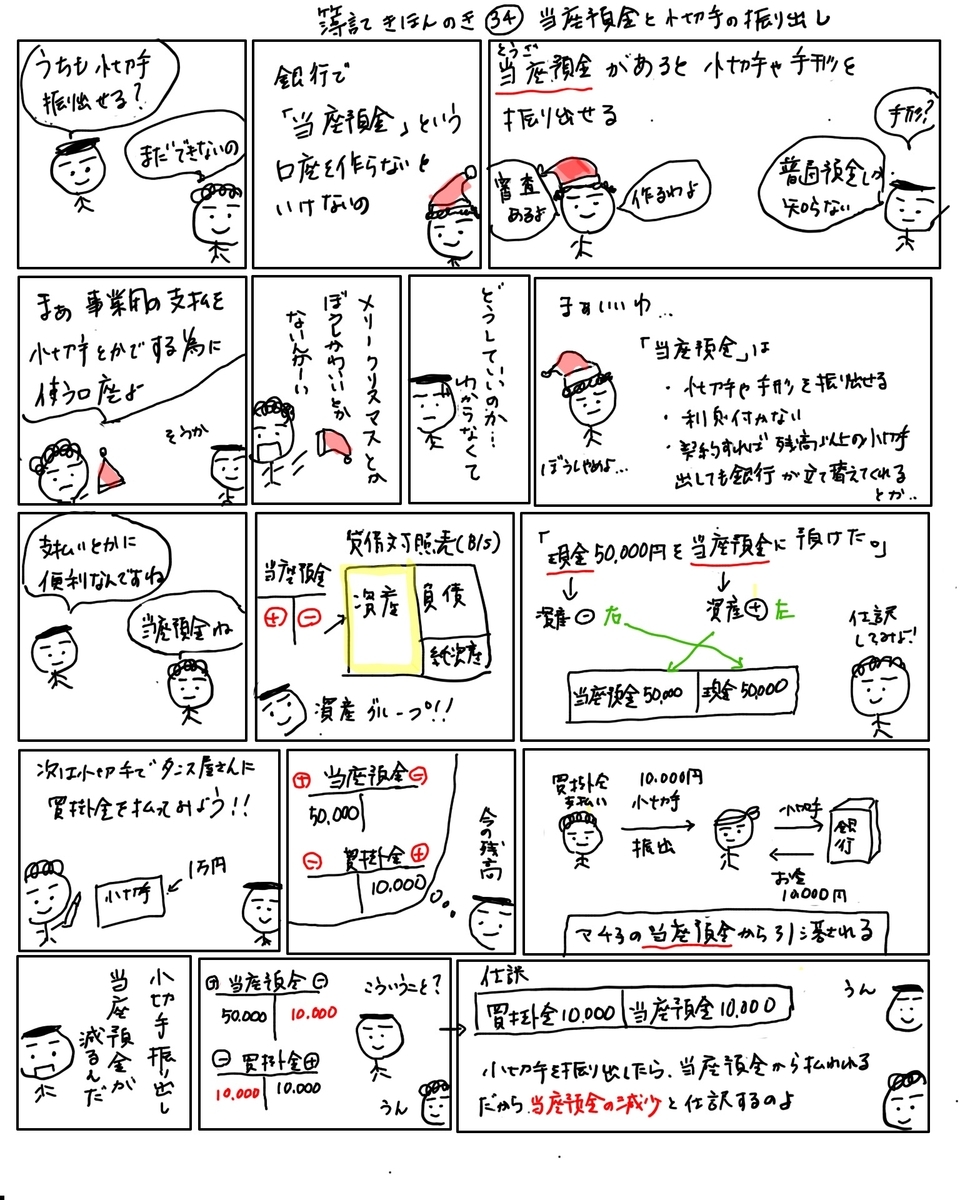 簿記きほんのき㉞ 当座預金と小切手の振り出し
うちも小切手
振り出せる?
まだできないの
銀行で
「当座預金」という
口座を作らないと
いけないの
とうざ
当座預金があると小切手や手形を
振り出せる
審査
あるよ
作るわよ
手形?
普通預金しか
知らない
まぁ事業用の支払を
小切手とかでする為に
使う口座よ
そうか
メリークリスマスとか
ぼうしかわいいとか
ないんかーい
どうしていいのか…
わからなくて
まぁいいわ…
「当座預金」は
・小切手や手形を振り出せる
・利息付かない
・契約すれば残高以上の小切手
出しても銀行が立て替えてくれる
とか..
ぼうしやめよ…
支払いとかに
便利なんですね
当座預金ね
貸借対照表(B/S)
当座預金
⊕ ⊖
資産
負債
純資産
資産グループ!!
「現金50,000円を当座預金に預けた。」
資産⊖右
資産⊕左
仕訳
してみよ!
当座預金50,000 現金50,000
次は小切手でタンス屋さんに
買掛金を払ってみよう!!
小切手
1万円
⊕当座預金⊖
50,000
⊖買掛金⊕
10,000
今の残高
買掛金
支払い
10,000円
小切手
振出
小切手
銀行
お金
10,000円
マチ子の当座預金から引き落される
小切手振り出し
当座預金が
減るんだ
⊕当座預金⊖
50,000 10,000
⊖買掛金⊕
10,000 10,000
こういうこと?
うん
仕訳
買掛金10,000 当座預金10,000
うん
小切手を振り出したら、当座預金から払われる
だから当座預金の減少と仕訳するのよ